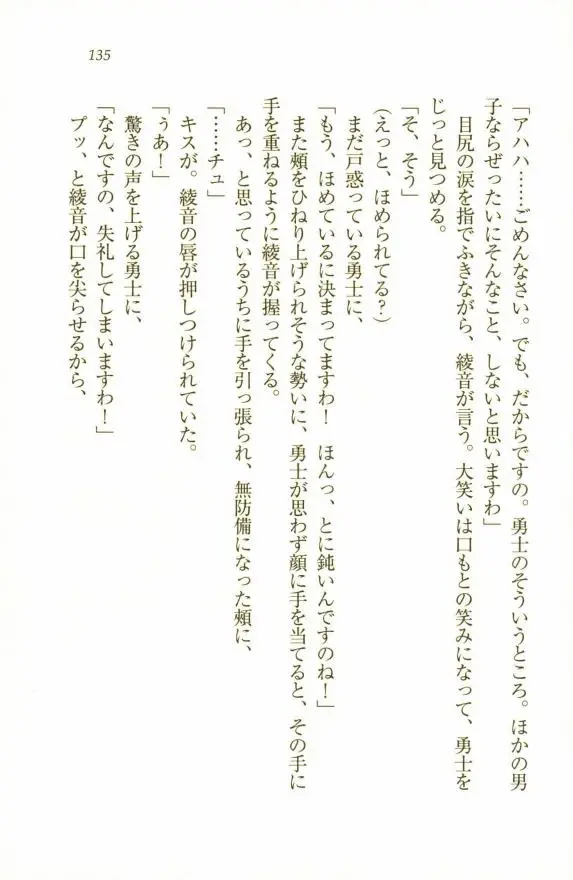 135
「アハハ……ごめんなさい。でも、だからですの。勇士のそういうところ。ほかの男
子ならぜったいにそんなこと、しないと思いますわ」
目尻の涙を指でふきながら、綾音が言う。大笑いは口もとの笑みになって、勇士を
じっと見つめる。
「そ、そう」
(えっと、ほめられてる?)
まだ戸惑っている勇士に、
「もう、ほめているに決まってますわ! ほんっ、とに鈍いんですのね!」
また頰をひねり上げられそうな勢いに、勇士が思わず顔に手を当てると、その手に
手を重ねるように綾音が握ってくる。
あっ、と思っているうちに手を引っ張られ、無防備になった頰に、
「……チュ」
キスが。綾音の唇が押しつけられていた。
「うぁあ!」
驚きの声を上げる勇士に、
「なんですの、失礼してしまいますわ!」
プッ、と綾音が口を尖らせるから、